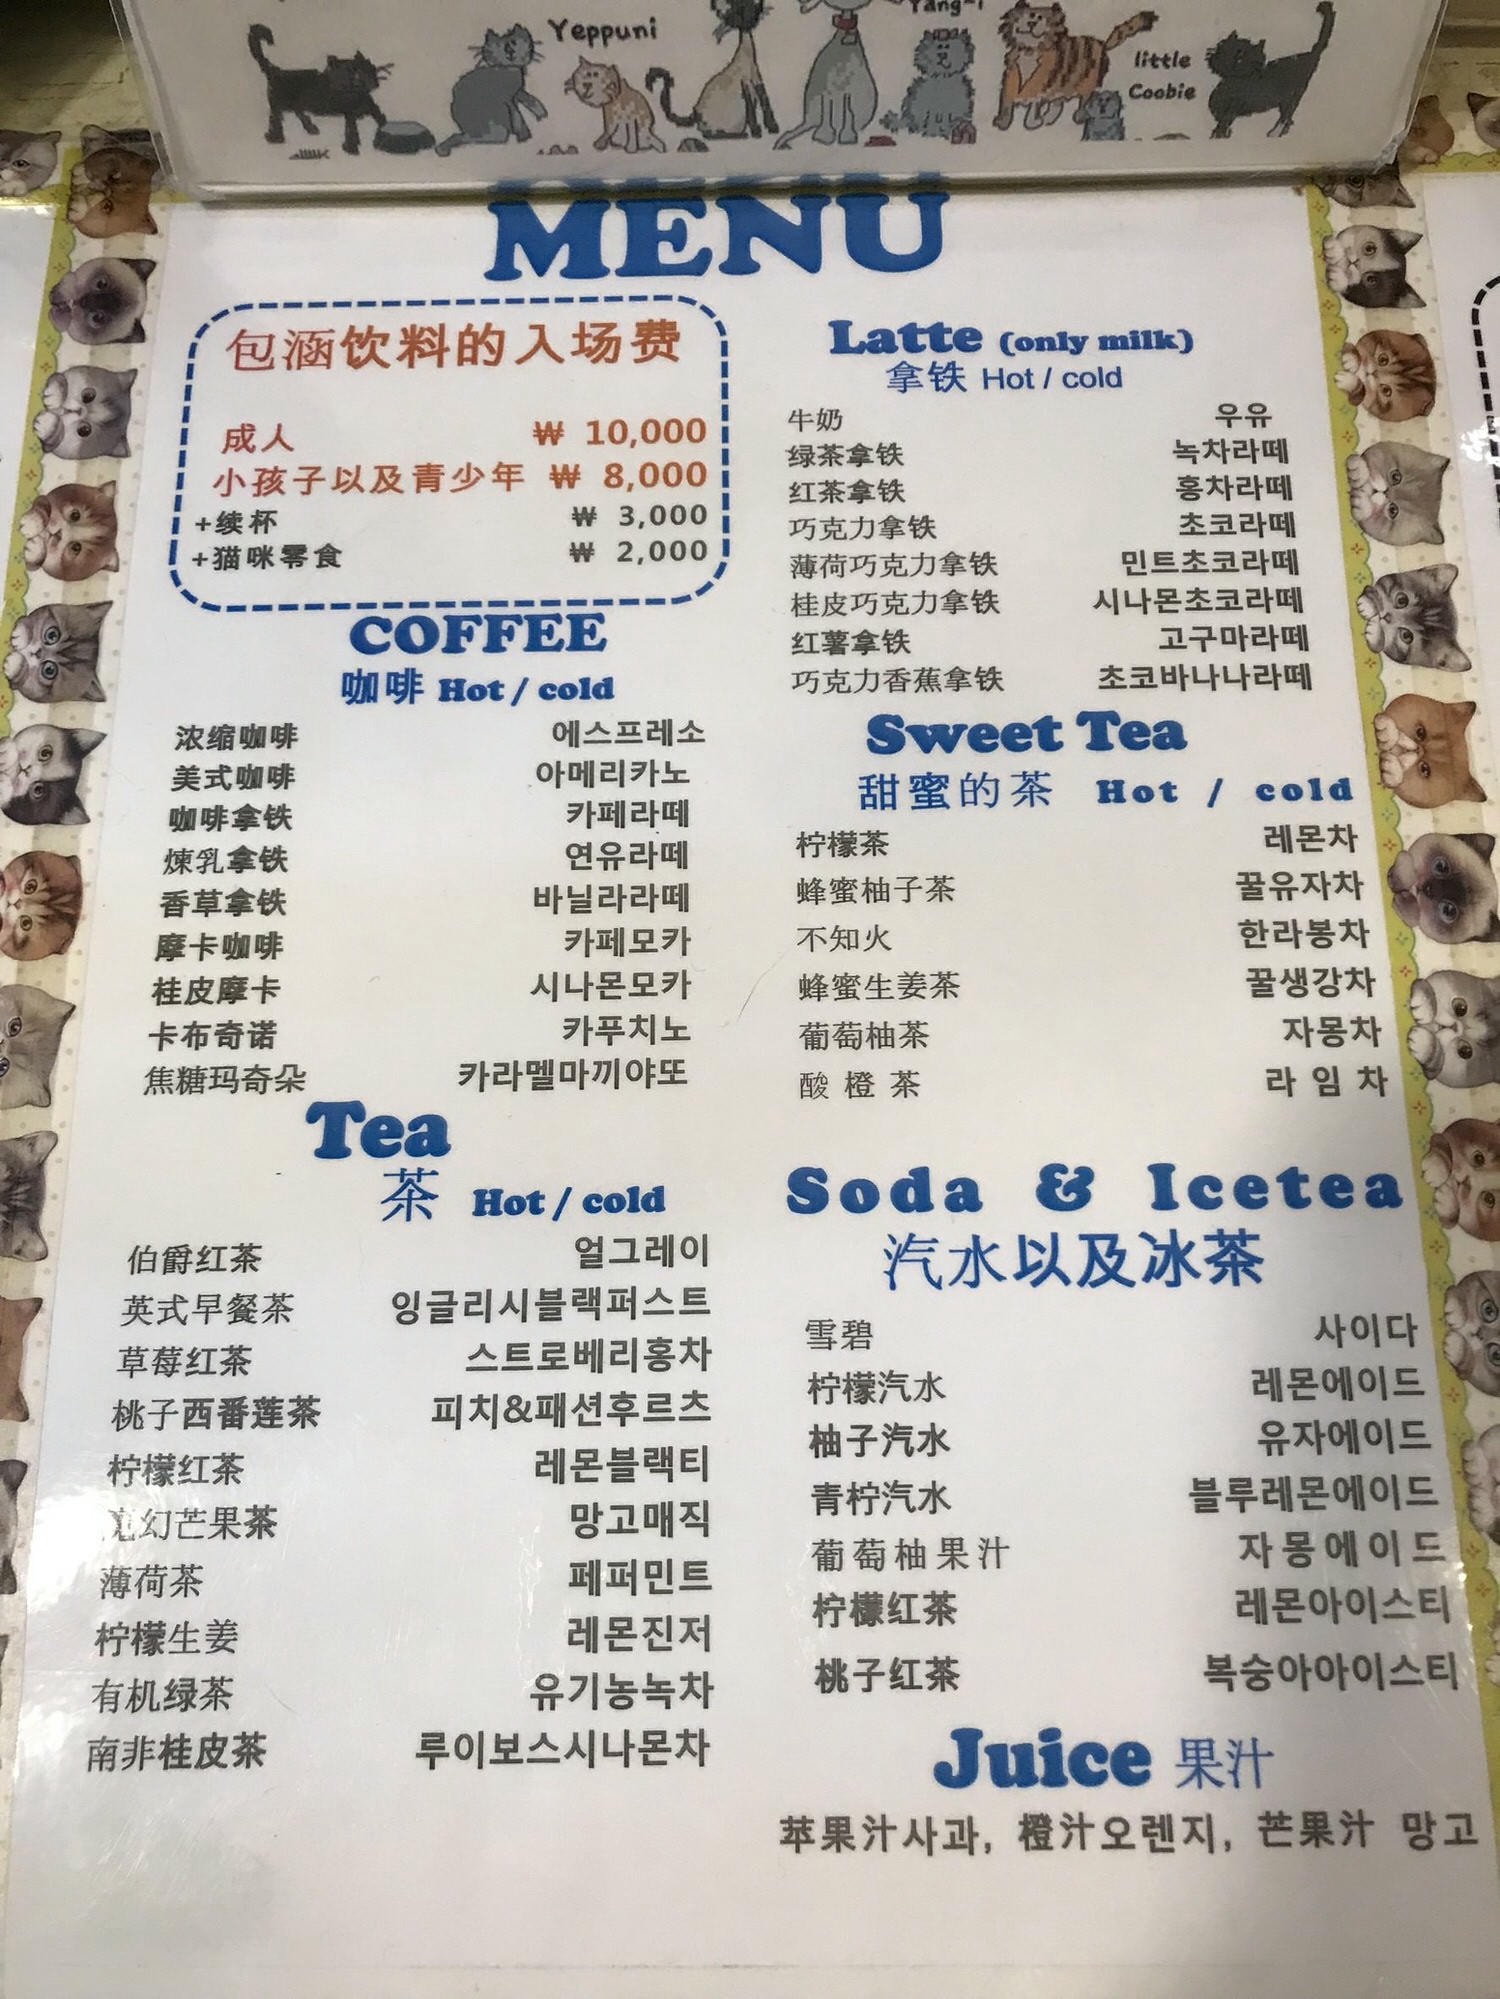 Yeppuni
Yang-i
little
Coobie
MENU
包涵饮料的入场费
成人 ₩ 10,000
小孩子以及青少年 ₩ 8,000
+续杯 ₩ 3,000
+猫咪零食 ₩ 2,000
COFFEE
咖啡 Hot / cold
浓缩咖啡 에스프레소
美式咖啡 아메리카노
咖啡拿铁 카페라떼
煉乳拿铁 연유라떼
香草拿铁 바닐라라떼
摩卡咖啡 카페모카
桂皮摩卡 시나몬모카
卡布奇诺 카푸치노
焦糖玛奇朵 카라멜마끼야또
Tea
茶 Hot / cold
伯爵红茶 얼그레이
英式早餐茶 잉글리시블랙퍼스트
草莓红茶 스트로베리홍차
桃子西番莲茶 피치&패션후르츠
柠檬红茶 레몬블랙티
幻芒果茶 망고매직
薄荷茶 페퍼민트
柠檬生姜 레몬진저
有机绿茶 유기농녹차
南非桂皮茶 루이보스시나몬차
Latte (only milk)
拿铁 Hot / cold
牛奶 우유
绿茶拿铁 녹차라떼
红茶拿铁 홍차라떼
巧克力拿铁 초코라떼
薄荷巧克力拿铁 민트초코라떼
桂皮巧克力拿铁 시나몬초코라떼
红薯拿铁 고구마라떼
巧克力香蕉拿铁 초코바나나라떼
Sweet Tea
甜蜜的茶 Hot / cold
柠檬茶 레몬차
蜂蜜柚子茶 꿀유자차
不知火 한라봉차
蜂蜜生姜茶 꿀생강차
葡萄柚茶 자몽차
酸 橙 茶 라 임 차
Soda & Icetea
汽水以及冰茶
雪碧 사이다
柠檬汽水 레몬에이드
柚子汽水 유자에이드
青柠汽水 블루레몬에이드
葡萄柚果汁 자몽에이드
柠檬红茶 레몬아이스티
桃子红茶 복숭아아이스티
Juice 果汁
苹果汁사과, 橙汁오렌지, 芒果汁 망고